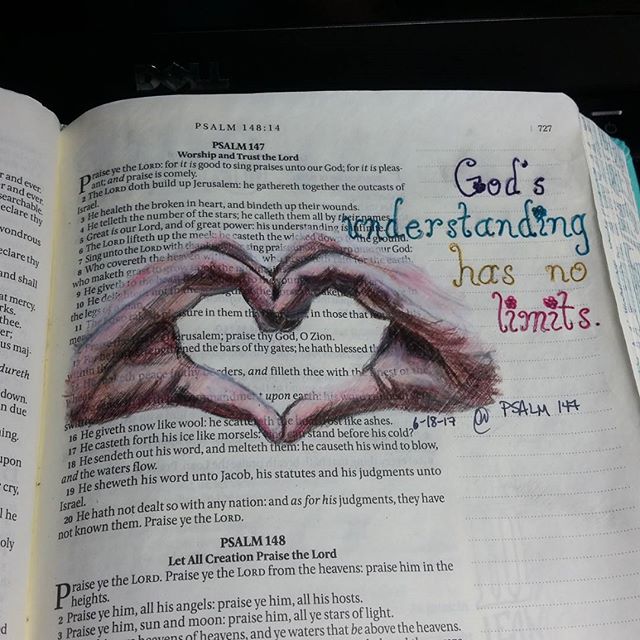 DELL
PSALM 148:14
727
PSALM 147
Worship and Trust the Lord
Praise ye the LORD: for it is good to sing praises unto our God; for it is pleas-
ant; and praise is comely.
2 The LORD doth build up Jerusalem: he gathereth together the outcasts of
Israel.
3 He healeth the broken in heart, and bindeth up their wounds.
4 He telleth the number of the stars; he calleth them all by their names.
5 Great is our Lord, and of great power: his understanding is infinite.
6 The LORD lifteth up the meek: he casteth the wicked down to the ground.
7 Sing unto the LORD with sing praise unto our God:
8 Who covereth the heaven for the earth,
who maketh grass to grow
9 He giveth to the
10 He
the legs of
11 sure in them in those that
Jerusalem; praise thy God, O Zion.
strengthened the bars of thy gates; he hath blessed
peace borders, and filleth thee with the
commandment upon earth: his word
16 He giveth snow like wool: he scattereth the like ashes.
17 He casteth forth his ice like morsels: can stand before his cold?
18 He sendeth out his word, and melteth them: he causeth his wind to blow,
and the waters flow.
19 He sheweth his word unto Jacob, his statutes and his judgments unto
Israel.
20 He hath not dealt so with any nation: and as for his judgments, they have
not known them. Praise ye the LORD.
PSALM 148
Let All Creation Praise the Lord
Praise ye the LORD. Praise ye the LORD from the heavens: praise him in the
heights.
2 Praise ye him, all his angels: praise ye him, all his hosts.
3 Praise ye him, sun and moon: praise him, all ye stars of light.
heavens of heavens, and ye waters that be above the heavens.
God's
understanding
has no
limits.
6-18-17 @ PSALM 147
r and ever.
r and ever.
searchable.
declare thy
wondrous
declare thy
and shall
at mercy.
rks.
thee.
er;
us maj-
dureth
down.
n due
hing.
upon
r cry,
l he
oly